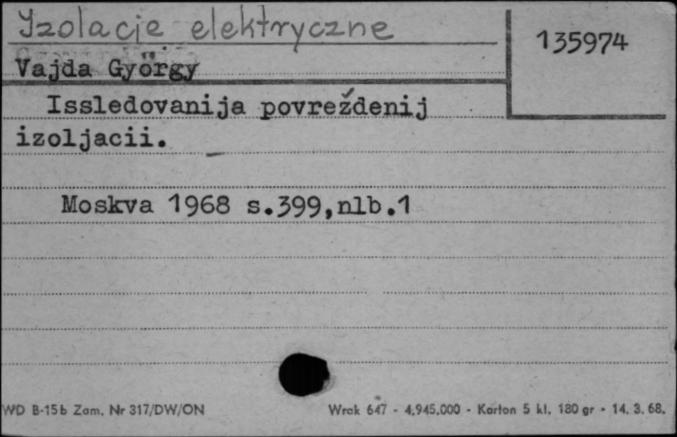 Izolacje elektryczne
135974
Vajda György
Issledovanija povreždenij
izoljacii.
Moskva 1968 s.399,nlb.1
WD B-15b Zam. Nr 317/DW/ON
Wrak 647 - 4.945.000 - Karton 5 kl. 180 gr - 14. 3. 68.